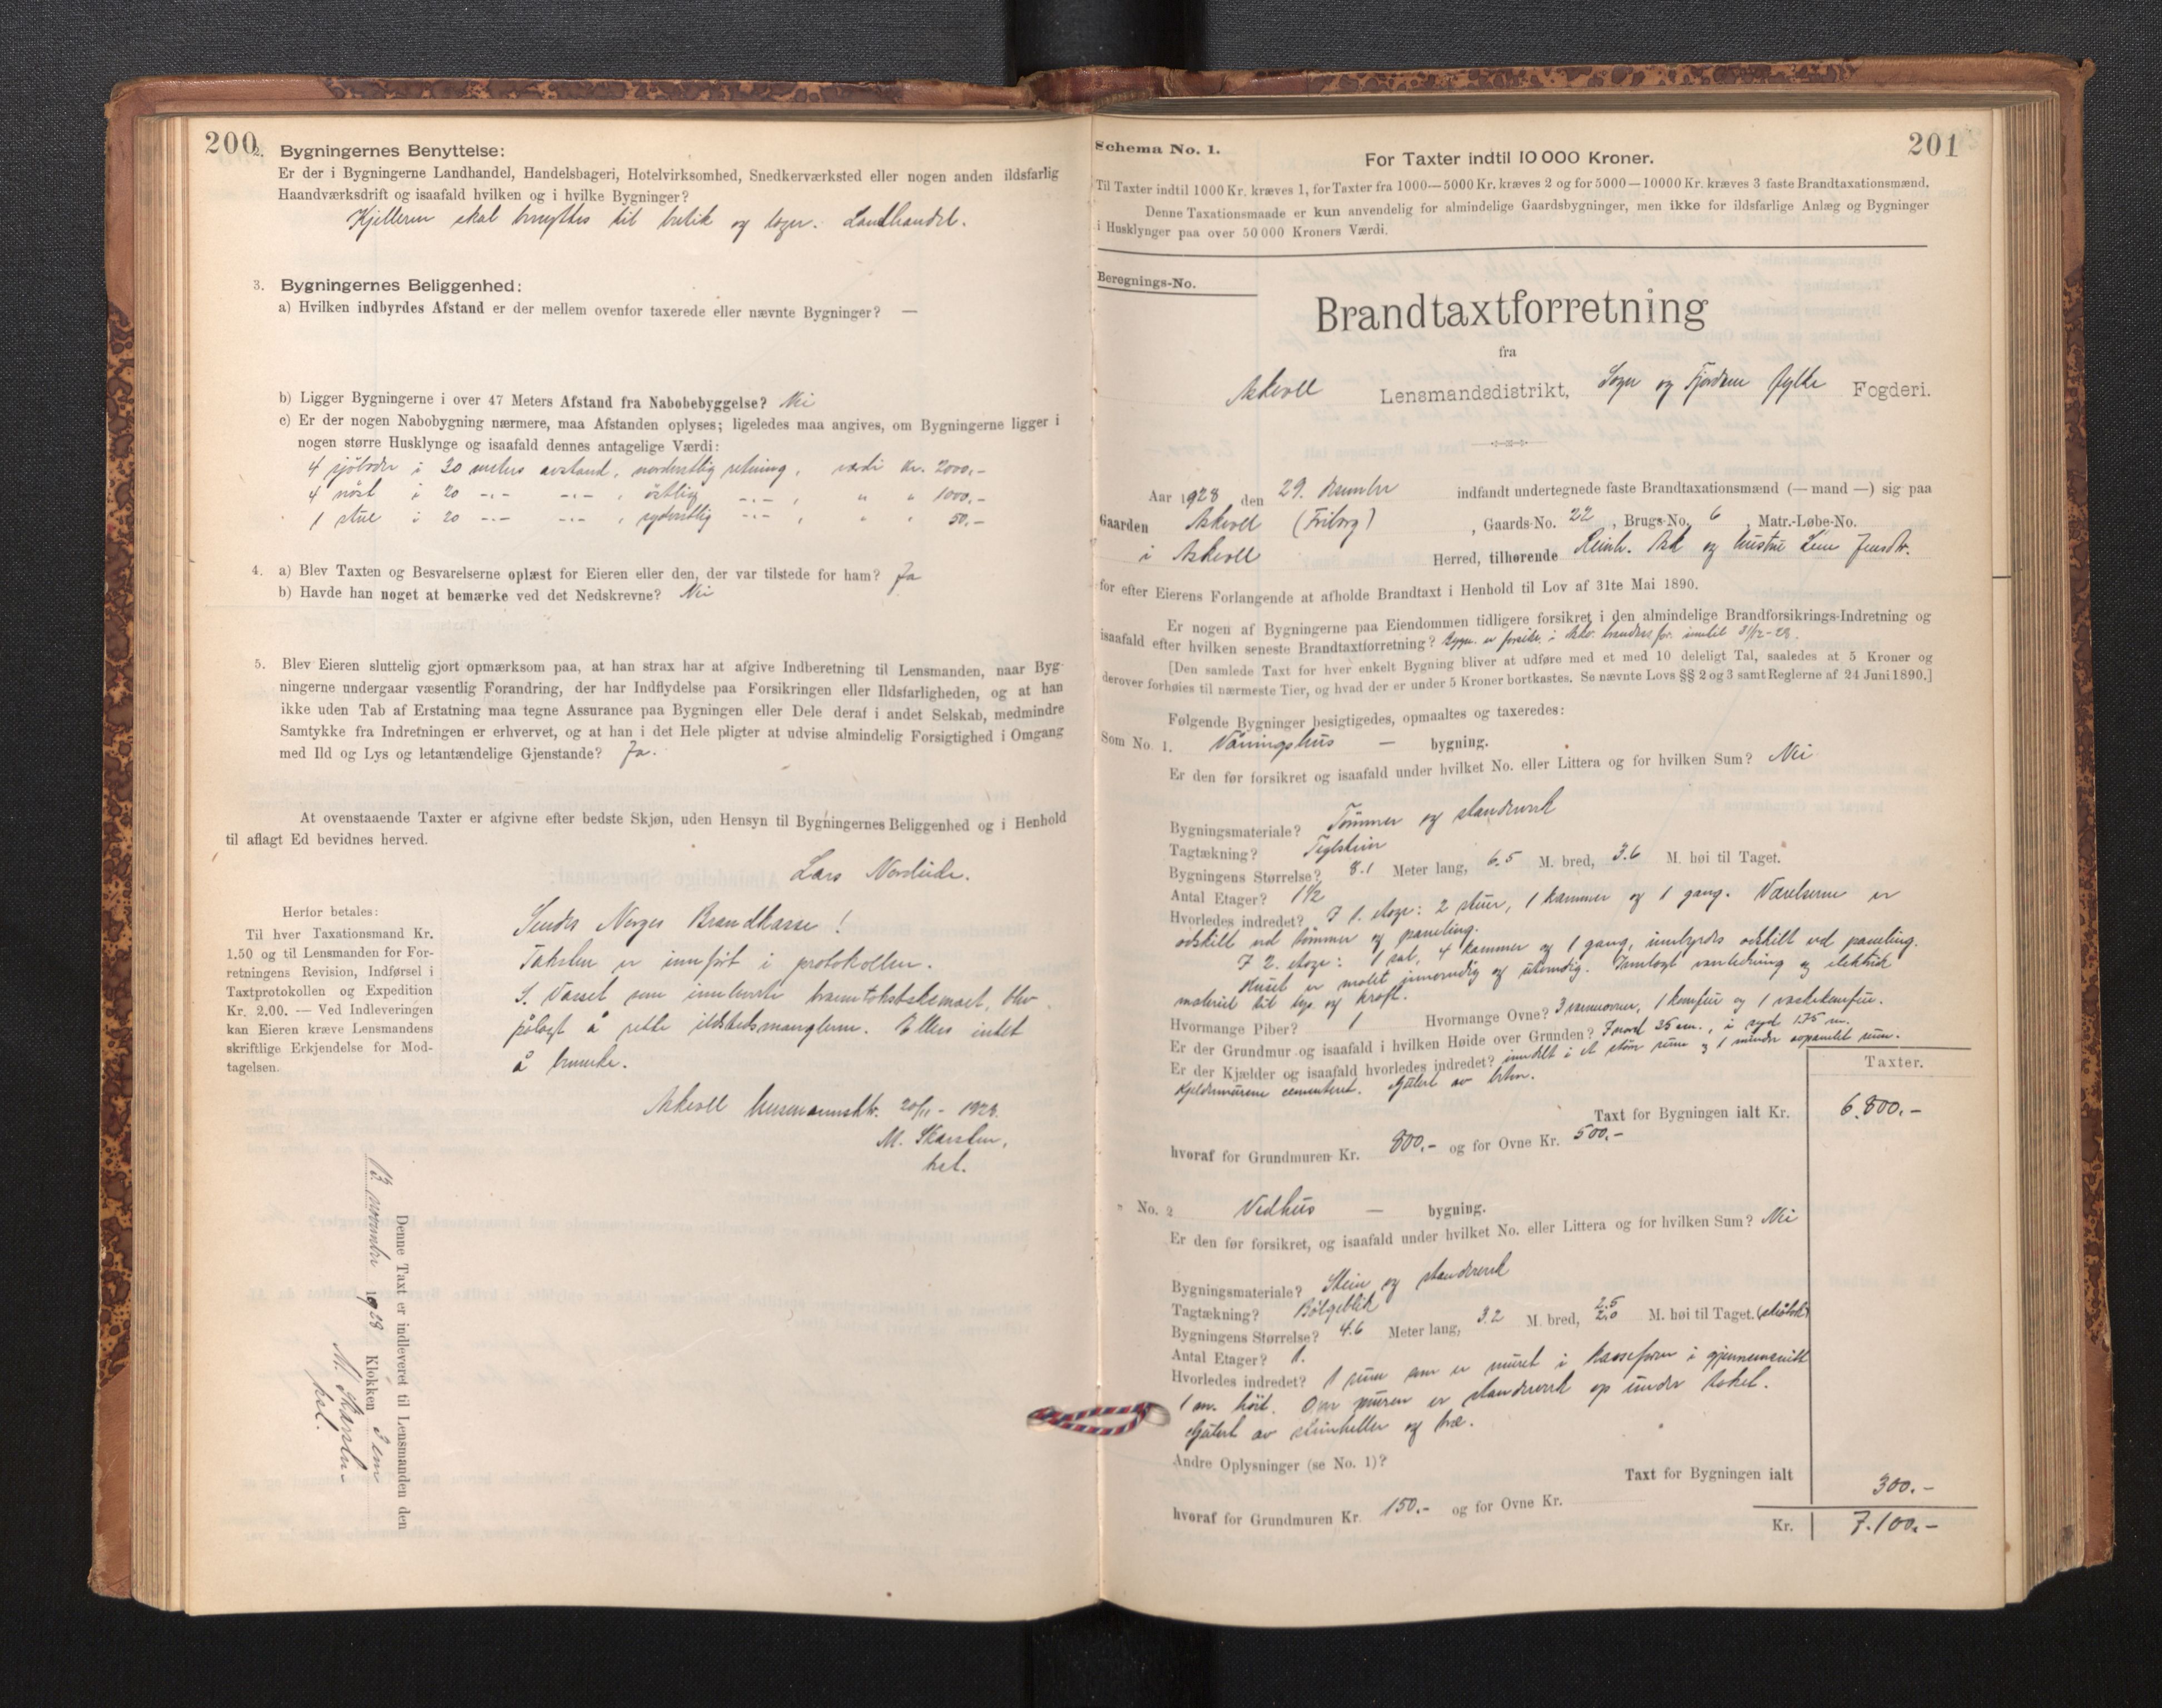 200
2. Bygningernes Benyttelse:
Er der i Bygningerne Landhandel, Handelsbageri, Hotelvirksomhed, Snedkerværksted eller nogen anden ildsfarlig
Haandværksdrift og isaafald hvilken og i hvilke Bygninger?
Kjelleren skal benyttes til butik og lager. Landhandel.
3. Bygningernes Beliggenhed:
a) Hvilken indbyrdes Afstand er der mellem ovenfor taxerede eller nævnte Bygninger? —
b) Ligger Bygningerne i over 47 Meters Afstand fra Nabobebyggelse? Nei
c) Er der nogen Nabobygning nærmere, maa Afstanden oplyses; ligeledes maa angives, om Bygningerne ligger i
nogen større Husklynge og isaafald dennes antagelige Værdi:
4 sjøboder i 30 meters avstand, nordvestlig retning, verdi kr. 2000,-
4 nöst i 20 -.- -.- , östlig -.- , " " 1000,-
1 stue i 20 -.- -.- , sydvestlig -.- , " " 50,-
4. a) Blev Taxten og Besvarelserne oplæst for Eieren eller den, der var tilstede for ham? Ja
b) Havde han noget at bemærke ved det Nedskrevne? Nei
5. Blev Eieren sluttelig gjort opmærksom paa, at han strax har at afgive Indberetning til Lensmanden, naar Byg-
ningerne undergaar væsentlig Forandring, der har Indflydelse paa Forsikringen eller Ildsfarligheden, og at han
ikke uden Tab af Erstatning maa tegne Assurance paa Bygningen eller Dele deraf i andet Selskab, medmindre
Samtykke fra Indretningen er erhvervet, og at han i det Hele pligter at udvise almindelig Forsigtighed i Omgang
med Ild og Lys og letantændelige Gjenstande? Ja.
At ovenstaaende Taxter er afgivne efter bedste Skjøn, uden Hensyn til Bygningernes Beliggenhed og i Henhold
til aflagt Ed bevidnes herved.
Lars Nordeide.
Herfor betales:
Til hver Taxationsmand Kr.
1.50 og til Lensmanden for For-
retningens Revision, Indførsel i
Taxtprotokollen og Expedition
Kr. 2.00. — Ved Indleveringen
kan Eieren kræve Lensmandens
skriftlige Erkjendelse for Mod-
tagelsen.
Sendes Norges Brandkasse!
Taksten er innført i protokollen.
S. Vasset som innleverte branntakstskemaet, blev
pålagt å rette ildstedsmanglene. Ellers intet
å bemerke.
Askvoll lensmannsktr. 20/11 - 1928.
M. Skarsten,
kst.
Denne Taxt er indleveret til Lensmanden den
13 november 1928 Klokken 3 em
M. Skarsten
kst.
201
Schema No. 1.
For Taxter indtil 10 000 Kroner.
Til Taxter indtil 1000 Kr. kræves 1, for Taxter fra 1000—5000 Kr. kræves 2 og for 5000—10000 Kr. kræves 3 faste Brandtaxationsmænd.
Denne Taxationsmaade er kun anvendelig for almindelige Gaardsbygninger, men ikke for ildsfarlige Anlæg og Bygninger
i Husklynger paa over 50 000 Kroners Værdi.
Beregnings-No.
Brandtaxtforretning
fra
Askvoll Lensmandsdistrikt, Sogn og Fjordane fylke Fogderi.
Aar 1928 den 29. desember indfandt undertegnede faste Brandtaxationsmænd (— mand —) sig paa
Gaarden Askvoll (Friborg), Gaards-No. 22, Brugs-No. 6, Matr.-Løbe-No.
i Askvoll Herred, tilhørende Reinh. Ask og hustru Jensdtr.
for efter Eierens Forlangende at afholde Brandtaxt i Henhold til Lov af 31te Mai 1890.
Er nogen af Bygningerne paa Eiendommen tidligere forsikret i den almindelige Brandforsikrings-Indretning og
isaafald efter hvilken seneste Brandtaxtforretning? Bygn. er forsikr. i Askv. brandassfor. inntil 31/12-28.
[Den samlede Taxt for hver enkelt Bygning bliver at udføre med et med 10 deleligt Tal, saaledes at 5 Kroner og
derover forhøies til nærmeste Tier, og hvad der er under 5 Kroner bortkastes. Se nævnte Lovs §§ 2 og 3 samt Reglerne af 24 Juni 1890.]
Følgende Bygninger besigtigedes, opmaaltes og taxeredes:
Som No. 1. Våningshus — bygning.
Er den før forsikret og isaafald under hvilket No. eller Littera og for hvilken Sum? Nei
Bygningsmateriale? Tømmer og standverk
Tagtækning? Teglstein
Bygningens Størrelse? 8.1 Meter lang, 6.5 M. bred, 3.6 M. høi til Taget.
Antal Etager? 1½
Hvorledes indredet? I 1. etage: 2 stuer, 1 kammer og 1 gang. Værelserne er
adskilt ved tømmer og paneling.
I 2. etage: 1 sal, 4 kammer og 1 gang, innbyrdes adskilt ved paneling.
Huset er malet innvendig og utvendig. Innlagt vannledning og elektrisk
materiel til lys og kraft.
Hvormange Piber? 1 Hvormange Ovne? 3 varmeovner, 1 komfur og 1 vaskekomfur.
Er der Grundmur og isaafald i hvilken Høide over Grunden? I nord 25 cm., i syd 175 m.
Er der Kjælder og isaafald hvorledes indredet? inndelt i et større rum og 1 mindre avpanelet rum.
Kjeldermurene cementeret. Gulvet av beton.
Taxter.
Taxt for Bygningen ialt Kr. 6.800,-
hvoraf for Grundmuren Kr. 800,- og for Ovne Kr. 500,-
No. 2 Vedhus — bygning.
Er den før forsikret, og isaafald under hvilket No. eller Littera og for hvilken Sum? Nei
Bygningsmateriale? Stein og standverk
Tagtækning? Bølgeblik
Bygningens Størrelse? 4.6 Meter lang, 3.2 M. bred, 2.5 2.0 M. høi til Taget. (skråtak)
Antal Etager? 1.
Hvorledes indredet? 1 rum som er muret i kasseform i gjennemsnitt
1 m. høit. Over muren er standverk op under taket.
Gulvet av steinheller og træ.
Andre Oplysninger (se No. 1)?
Taxt for Bygningen ialt 300.-
hvoraf for Grundmuren Kr. 150.- og for Ovne Kr.
Kr. 7.100.-